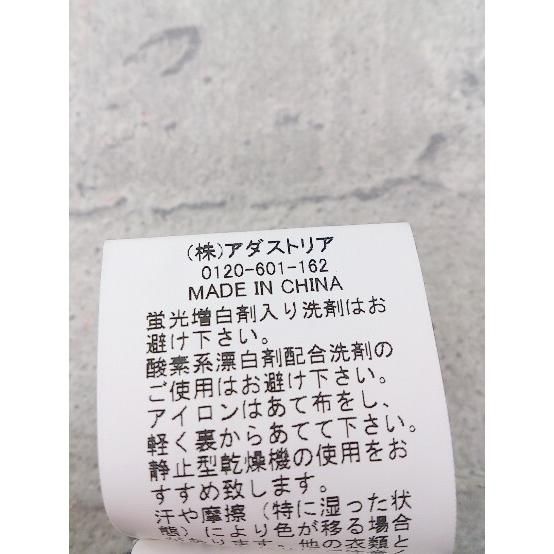 (株)アダストリア
0120-601-162
MADE IN CHINA
蛍光増白剤入り洗剤はお
避け下さい。
酸素系漂白剤配合洗剤の
ご使用はお避け下さい。
アイロンはあて布をし、
軽く裏からあてて下さい。
静止型乾燥機の使用をお
すすめ致します。
汗や摩擦（特に湿った状
態）により色が移る場合
があります。他の衣類と